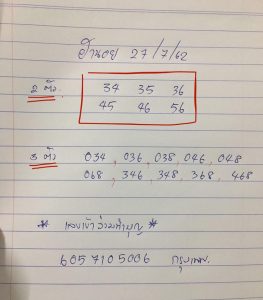 ฮานอย 27/7/62
2 ตัว 34 35 36
45 46 56
3 ตัว 034, 036, 038, 046, 048
068, 346, 348, 368, 468
* เลขเข้า ร่วมทำบุญ *
605 710 5006 กรุงเทพ.